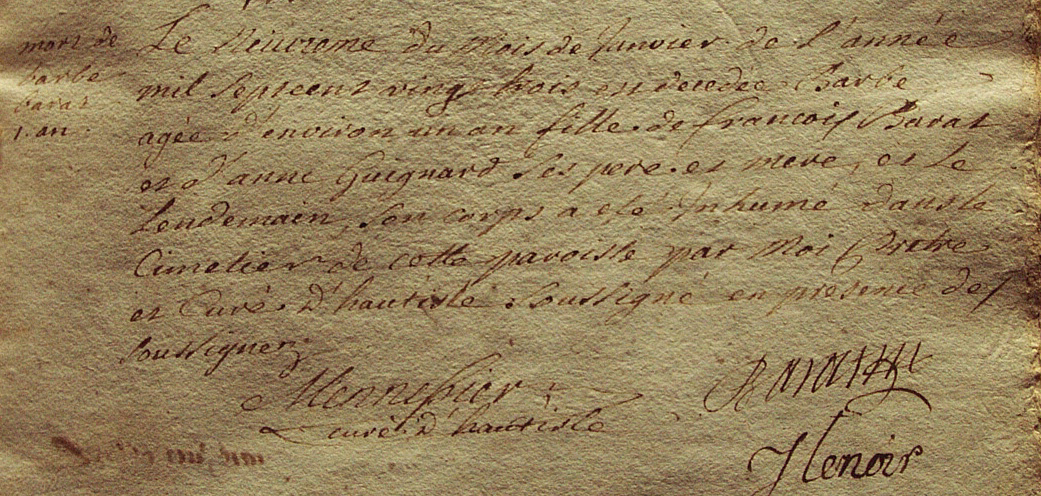 mort de
barbe
barat
1. an.
Le Neuvieme du Mois de Janvier de l'année
mil Septcent vingt trois est decedée Barbe
agée d'environ un an fille de francois Barat
et d'anne Guignard Ses pere et mere, et Le
Lendemain, Son corps a eté Inhumé dans le
Cimetier de cette paroisse par Moi Pretre
et Curé D'hautisle Soussigné en présence des
soussignez
Barat
curé D'hautisle
J lenoir